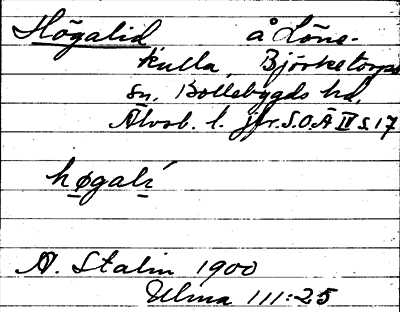 Högalid å Löne-
kulla, Björketorps
sn. Bollebygds hd.
Älvsb. l. jfr. S.O.Ä IX s. 17
høgalí
A. Stalin 1900
Ulma 111:25